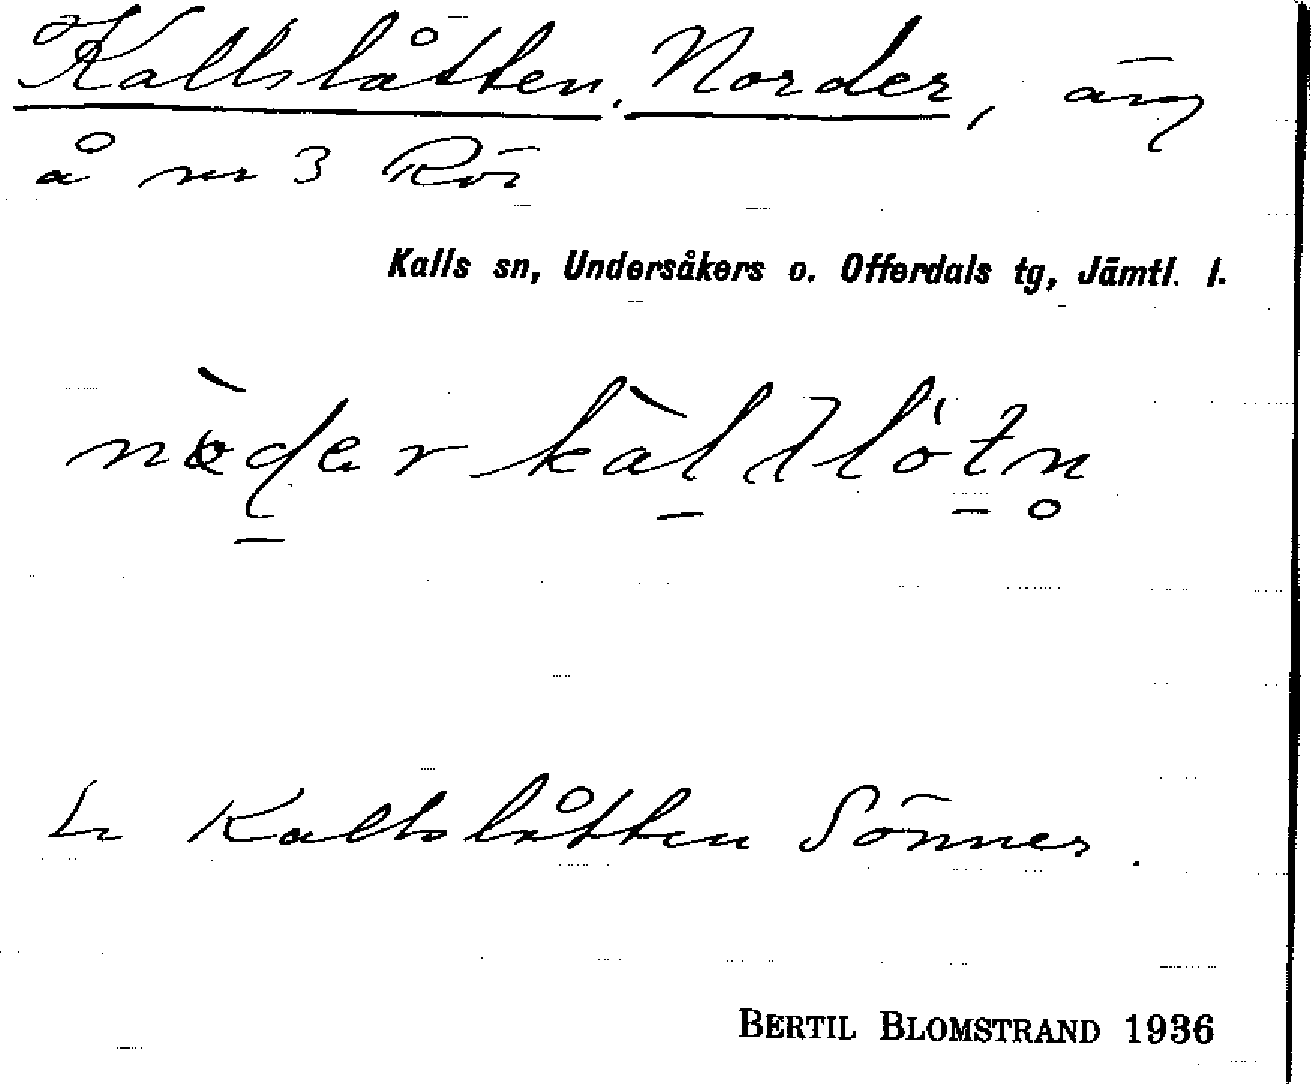 Kallslåtten, Norder, äng
å nr 3 Röi
Kalls sn, Undersåkers o. Offerdals tg, Jämtl. l.
Se Kallslåtten Sönner.
BERTIL BLOMSTRAND 1936